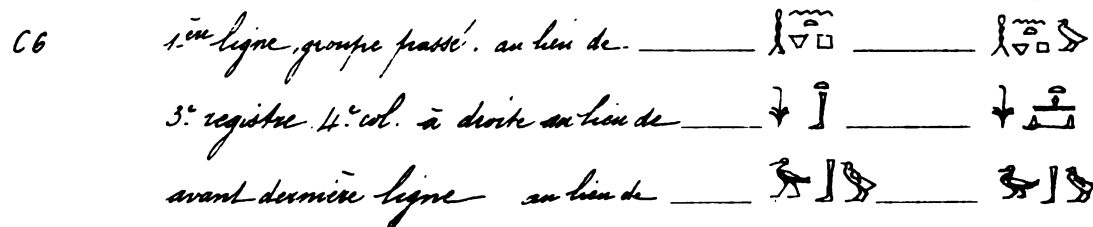 C6 1.ère ligne, groupe passé. au lieu de. _______ _______
3.e registre 4.e col. à droite au lieu de _______ _______
avant dernière ligne au lieu de _______ _______